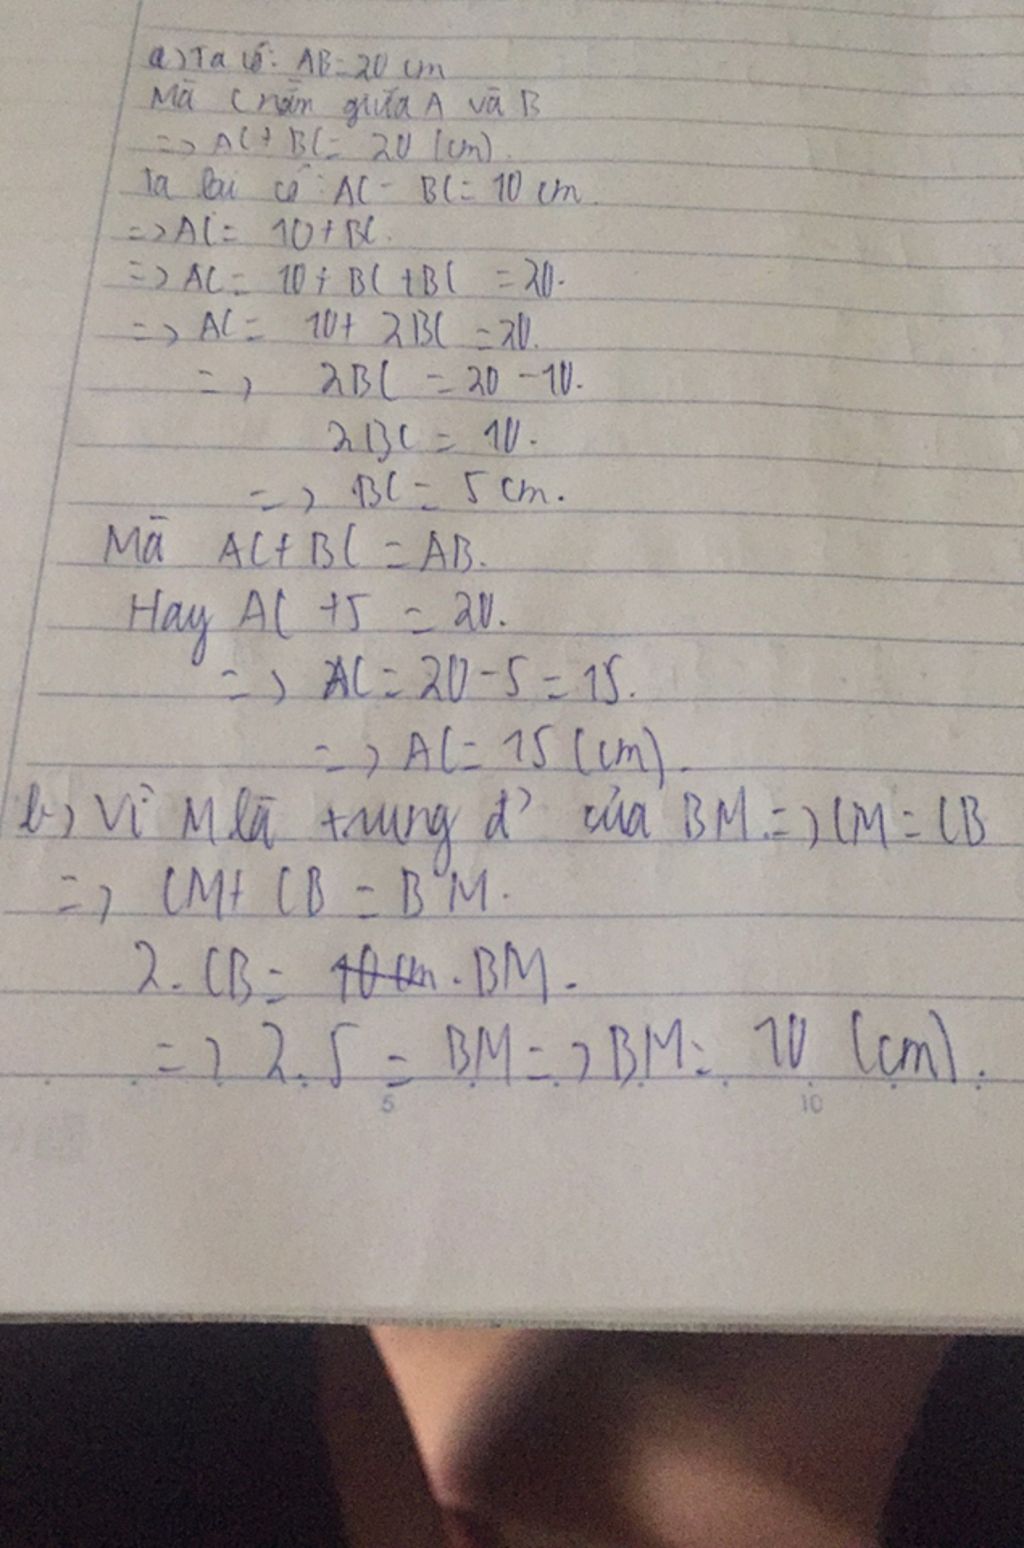 a) Ta có: AB = 20 cm
Mà C nằm giữa A và B
=> AC + BC = 20 (cm).
Ta lại có: AC - BC = 10 cm.
=> AC = 10 + BC.
=> AC = 10 + BC + BC = 20.
=> AC = 10 + 2BC = 20.
=> 2BC = 20 - 10.
2BC = 10.
=> BC = 5 cm.
Mà AC + BC = AB.
Hay AC + 5 = 20.
=> AC = 20 - 5 = 15.
=> AC = 15 (cm).
b) Vì M là trung đ' của BM. => CM = CB
=> CM + CB = BM.
2. CB = 10 cm. BM.
=> 2.5 = BM => BM = 10 (cm).
5 10